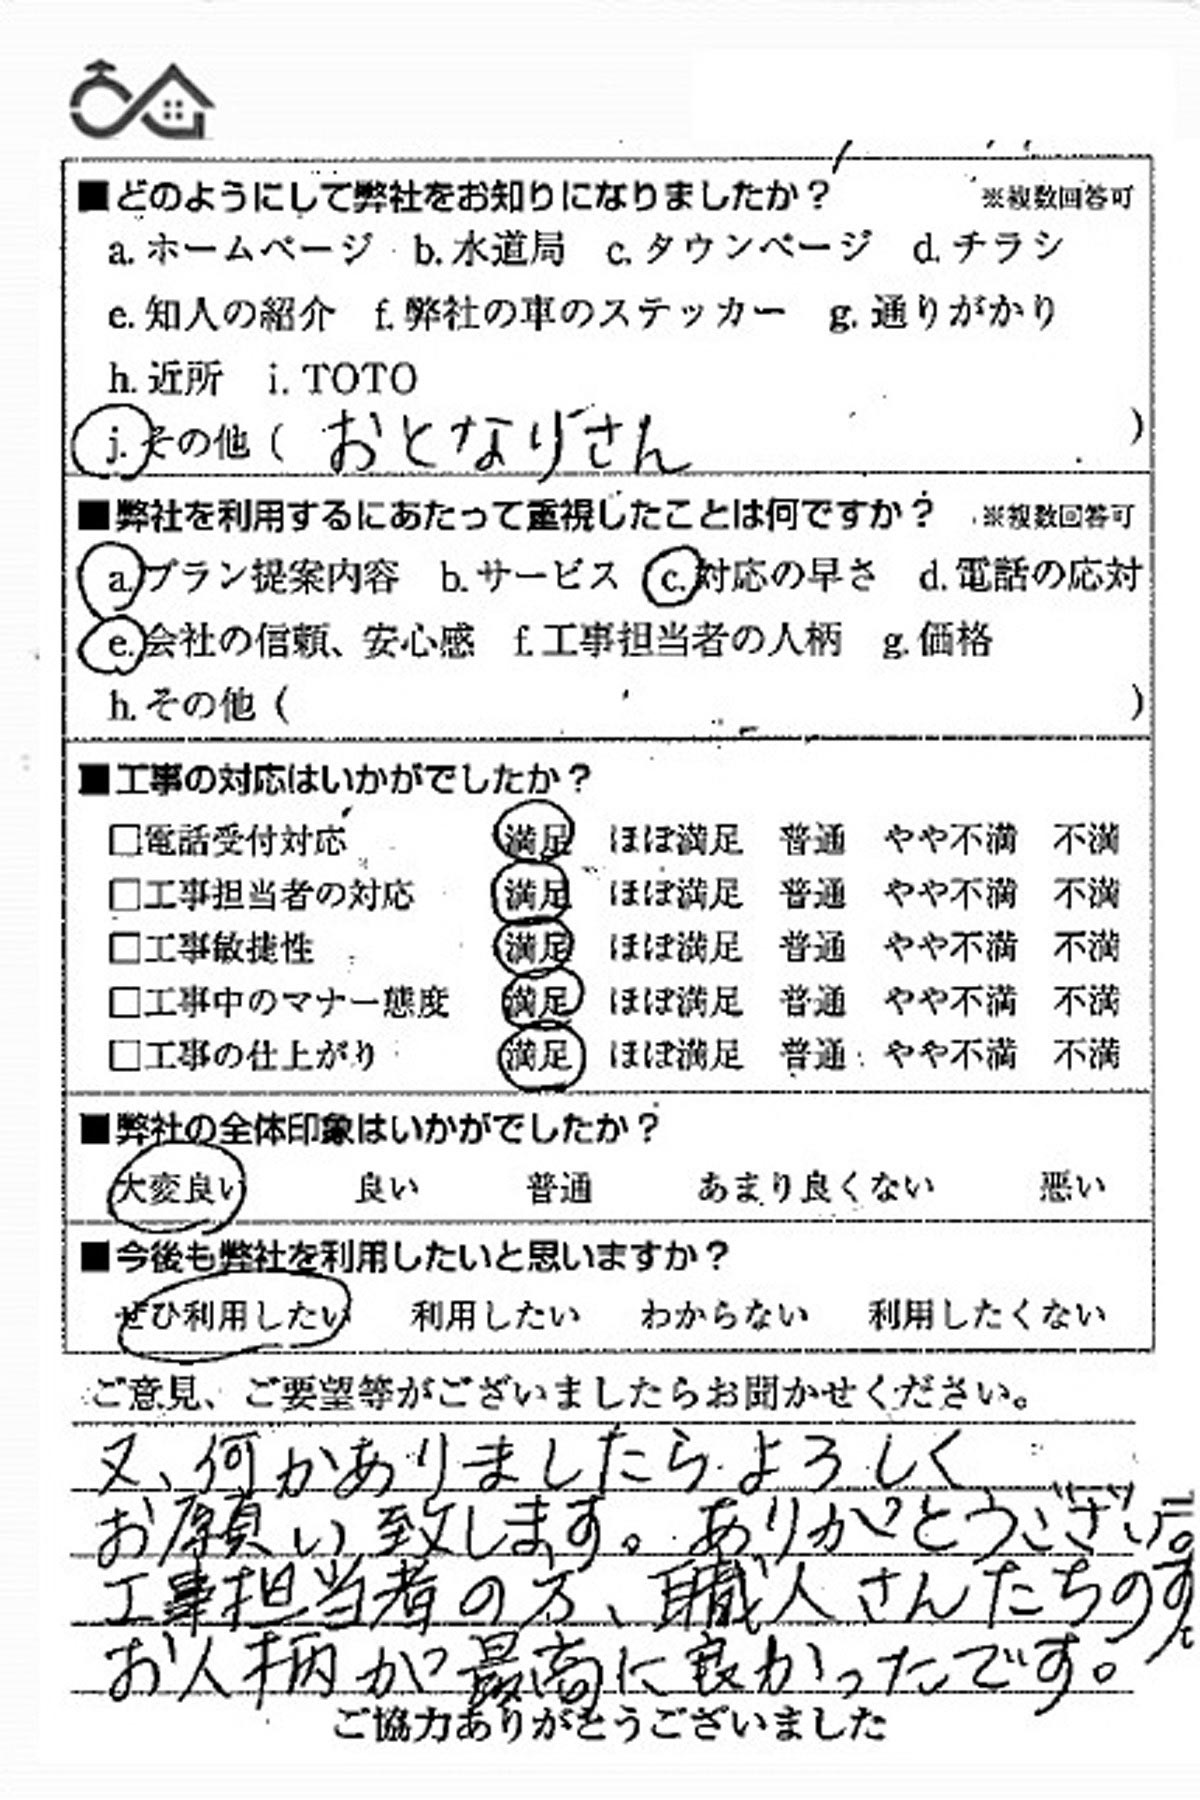 ■どのようにして弊社をお知りになりましたか？ ※複数回答可
a.ホームページ b.水道局 c.タウンページ d.チラシ
e.知人の紹介 f.弊社の車のステッカー g.通りがかり
h.近所 i.TOTO
j.その他（ おとなりさん ）
■弊社を利用するにあたって重視したことは何ですか？ ※複数回答可
a.プラン提案内容 b.サービス c.対応の早さ d.電話の応対
e.会社の信頼、安心感 f.工事担当者の人柄 g.価格
h.その他（ ）
■工事の対応はいかがでしたか？
□電話受付対応 満足 ほぼ満足 普通 やや不満 不満
□工事担当者の対応 満足 ほぼ満足 普通 やや不満 不満
□工事敏捷性 満足 ほぼ満足 普通 やや不満 不満
□工事中のマナー態度 満足 ほぼ満足 普通 やや不満 不満
□工事の仕上がり 満足 ほぼ満足 普通 やや不満 不満
■弊社の全体印象はいかがでしたか？
大変良い 良い 普通 あまり良くない 悪い
■今後も弊社を利用したいと思いますか？
ぜひ利用したい 利用したい わからない 利用したくない
ご意見、ご要望等がございましたらお聞かせください。
又、何かありましたらよろしく
お願い致します。ありがとうござい
ます。
工事担当者の方、職人さんたちの
お人柄が最高に良かったです。
ご協力ありがとうございました